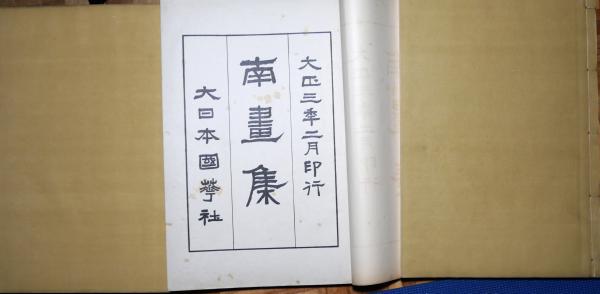 大正三年二月印行
南畫集
大日本國華社